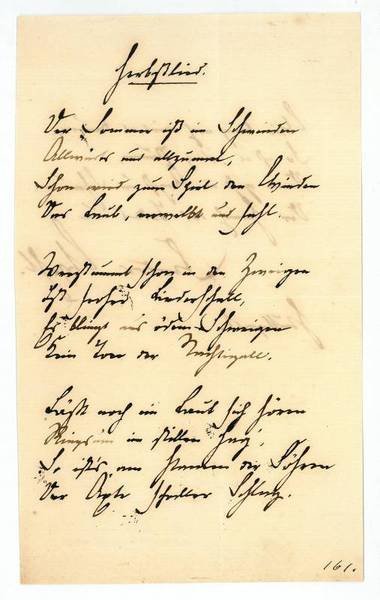 Herbstlied.
Der Sommer ist im Schwinden
Allwärts und allzumal,
Schon wird zum Spiel den Winden
Das Laub, verwelkt und fahl.
Verstummt schon in den Zweigen
Ist froher Liederschall,
Es klingt aus ödem Schweigen
Kein Ton der Nachtigall.
Läßt noch ein Laut sich hören
Ringsum im stillen
So ist's am Stamm der Föhren
Der Äxte schriller Schlag.
161.